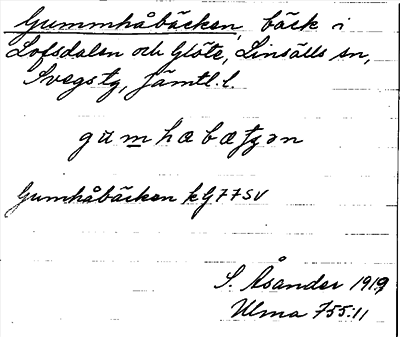 Gummhåbäcken, bäck i
Lofsdalen och Glöte, Linsälls sn,
Svegs tg, Jämtl. l.
Gumhåbäcken kG77SV
S. Åsander 1919
Ulma 755:11